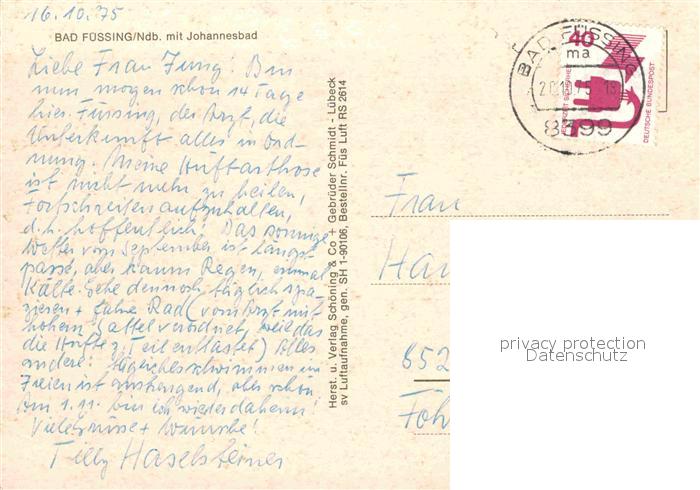 16.10.75
BAD FÜSSING/Ndb. mit Johannesbad
Liebe Frau Jung! Bin
nun morgen schon 14 Tage
hier. Füssing, der Arzt, die
Unterkunft alles in Ord-
nung. Meine Hüftarthose
ist nicht mehr zu heilen,
Fortschreiten aufzuhalten,
d.h. hoffentlich! Das sonnige
Wetter vom September ist längst
passé, aber kaum Regen, einmal
Kälte. Gehe dennoch täglich spa-
zieren + fahre Rad (vom Arzt mit
hohem Sattel verordnet, weil das
die Hüfte z. Teil entlastet) Alles
andere: tägliches schwimmen im
Freien ist anstrengend, aber schön
Am 1.11. bin ich wieder daheim!
Viele Grüsse + Wünsche!
Tilly Haselsteiner
Herst. u. Verlag Schöning & Co + Gebrüder Schmidt - Lübeck
sv Luftaufnahme, gen. SH 1-90106, Bestellnr. Füs Luft RS 2614
40
DEUTSCHE BUNDESPOST
BAD FÜSSING
ma
8399
Frau
852
privacy protection
Datenschutz